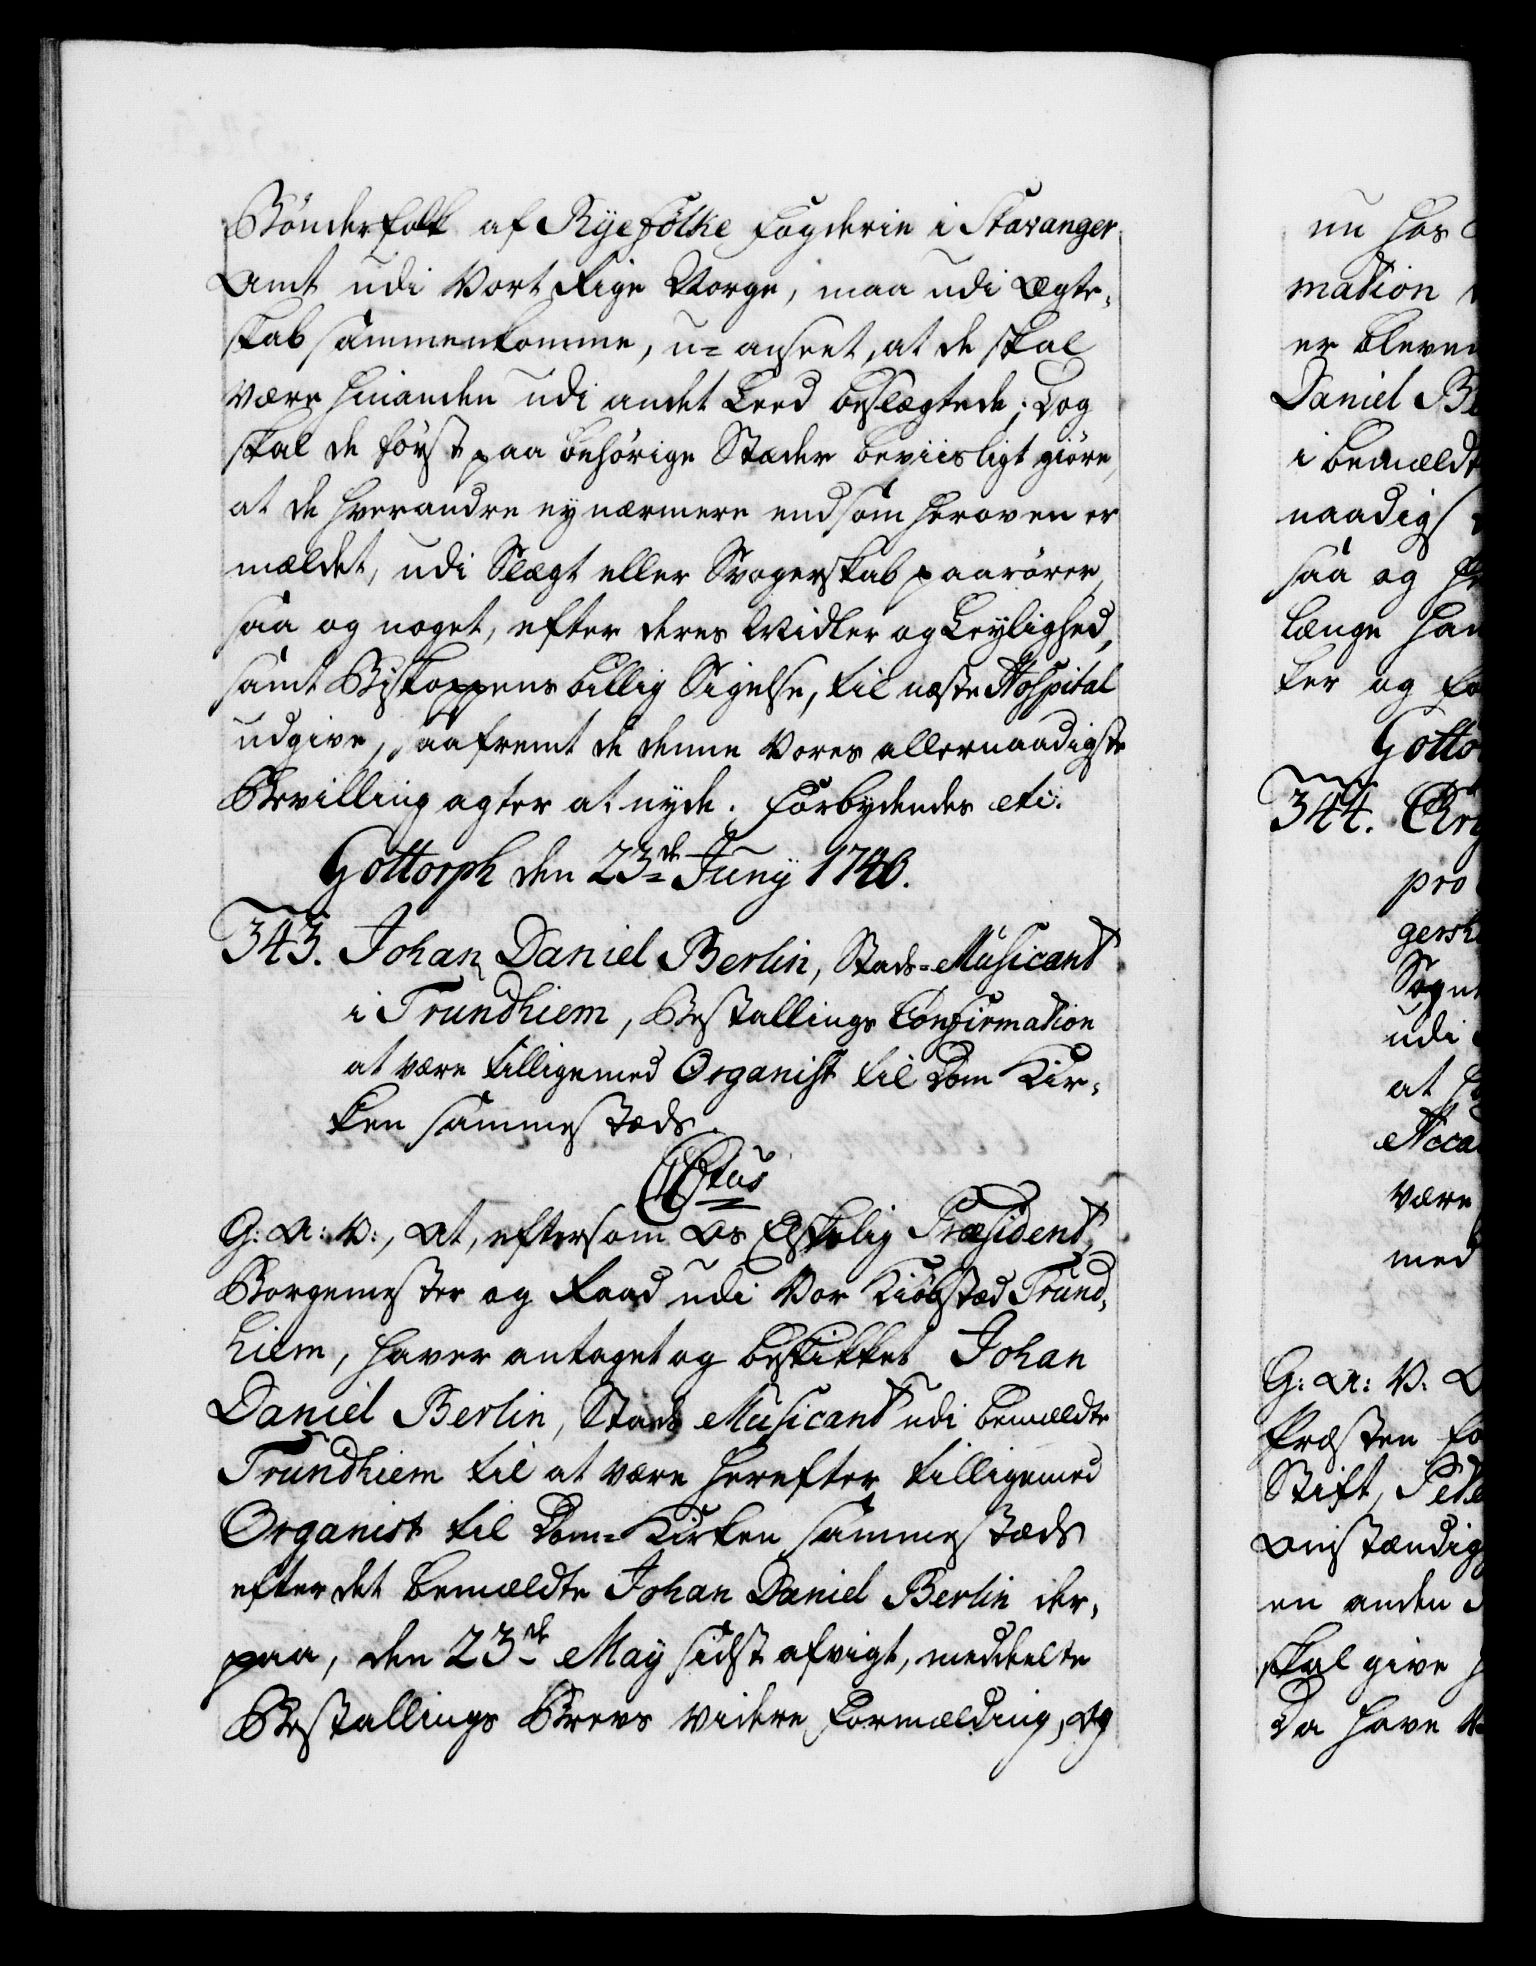 Bønderfolk af Ryefølke Fogderie i Stavanger
Amt udi Vort Rige Norge, maa udi Ægte-
skab sammenkomme, u-anseet, at de skal
være hinanden udi andet Leed beslægtede; Dog
skal de først paa behørige Stæder beviisligt giøre,
at de hverandre ey nærmere end som heroven er
mældet, udi Slægt eller Svogerskab paarører,
saa og noget, efter deres Midler og Leylighed,
samt Biskoppens billig Sigelse, til næste Hospital
udgive, saafremt de denne Vores allernaadigste
Bevilling agter at nyde. Forbydendes etc.
Gottorph den 23de Juny 1746.
343. Johan Daniel Berlin, Stads-Musicant
i Trundhiem, Bestallings Confirmation
at være tilligemed Organist til Dom Kir-
ken sammestæds.
C6tus
G: A: V:, At, eftersom Os Elskelig Præsident,
Borgemester og Raad udi Vor Kiøbstæd Trund-
hiem, haver antaget og beskikket Johan
Daniel Berlin, Stads Musicant udi bemældte
Trundhiem til at være herefter tilligemed
Organist til Dom-Kirken sammestæds
efter det bemældte Johan Daniel Berlin der-
paa, den 23de May sidst afvigt, meddeelte
Bestallings Brevs videre Formælding, Og
nu hos
mation
er bleven
Daniel Be
i bemældt
naadigst
saa og
længe han
ker og fo
Gotto
344.
pro
gersk
Sogne
udi
at
Vacan
være
med
G: A: V:
Præsten fo
Stift, Pede
Omstændig
en anden
skal give
Da have V